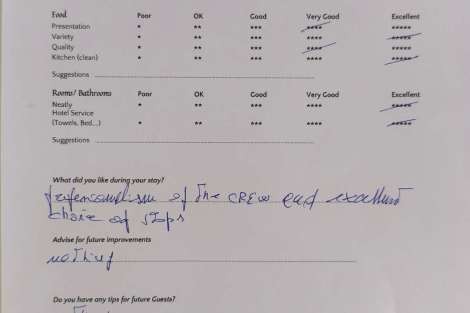 Food Poor OK Good Very Good Excellent
Presentation * ** *** **** *****
Variety * ** *** **** *****
Quality * ** *** **** *****
Kitchen (clean) * ** *** **** *****
Suggestions
Rooms/ Bathrooms Poor OK Good Very Good Excellent
Neatly * ** *** **** *****
Hotel Service
(Towels, Bed...) * ** *** **** *****
Suggestions
What did you like during your stay?
of the CREW and excellent
of stops
Advise for future improvements
nothing
Do you have any tips for future Guests?